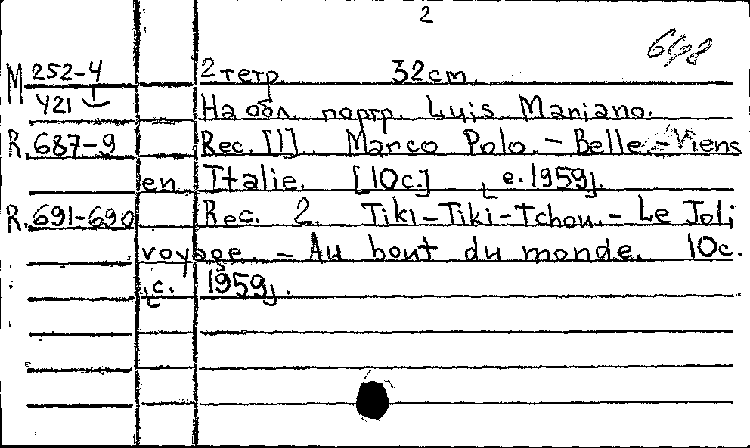 2
648
M 252-4 2 тетр. 32см.
421 На обл. портр. Luis Mariano.
R. 687-9 Rec. [1]. Marco Polo. - Belle. - Viens
en Italie. [10с.] [с. 1959].
R. 691-690 Rec. 2. Tiki-Tiki-Tchou. - Le Joli
voyage. - Au bout du monde. 10с.
[с. 1959].